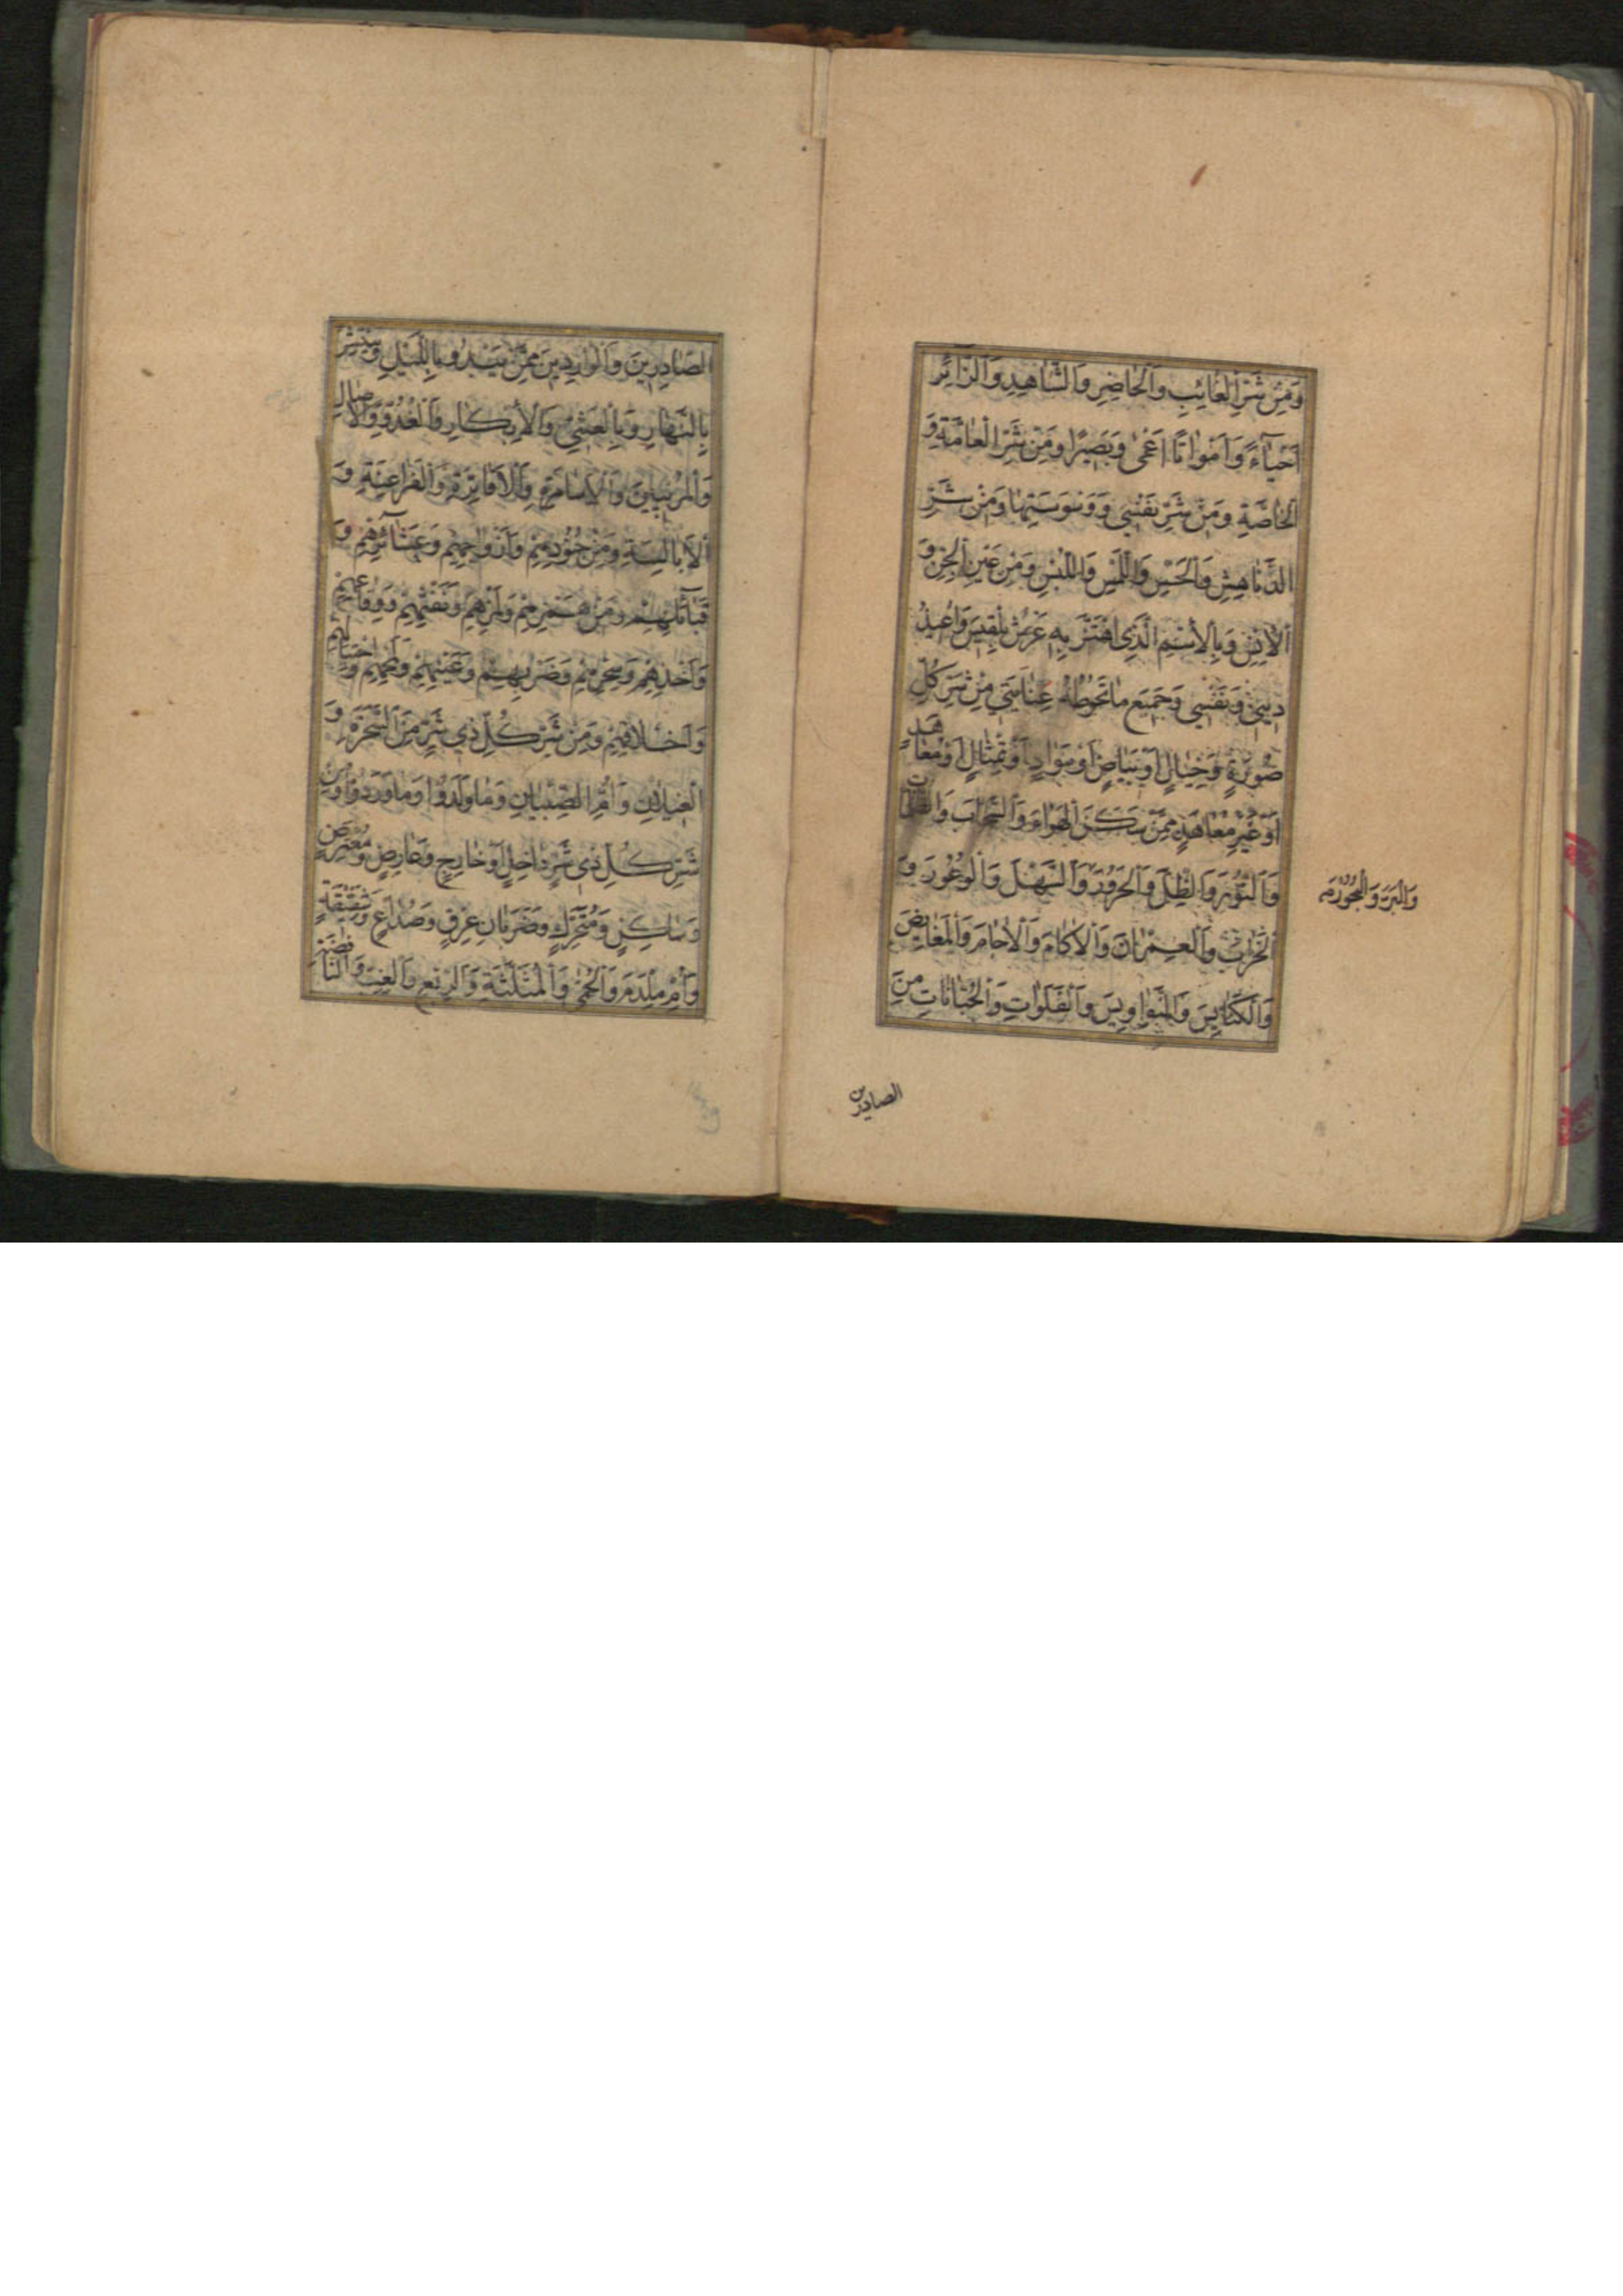 وَمِنْ شَرِّ الْغَائِبِ وَالْحَاضِرِ وَالشَّاهِدِ وَالزَّائِرِ
اَحْيَآءً وَاَمْوَاتًا اَعْمٰى وَبَصِيرًا وَمِنْ شَرِّ الْعَامَّةِ وَ
الْخَاصَّةِ وَمِنْ شَرِّ نَفْسِي وَوَسْوَسَتِهَا وَمِنْ شَرِّ
الدَّنَاهِشِ وَالْحَسِّ وَاللَّمْسِ وَاللَّبْسِ وَمِنْ عَيْنِ الْجِنِّ وَ
الْاِنْسِ وَبِالْاِسْمِ الَّذِي اهْتَزَّ بِهِ عَرْشُ بِلْقِيسَ وَاُعِيذُ
دِينِي وَنَفْسِي وَجَمِيعَ مَا تَحُوطُهُ عِنَايَتِي مِنْ شَرِّ كُلِّ
صُورَةٍ وَخَيَالٍ اَوْ بَيَاضٍ اَوْ سَوَادٍ اَوْ تِمْثَالٍ اَوْ مُعَاهَدٍ
اَوْ غَيْرِ مُعَاهَدٍ مِمَّنْ سَكَنَ الْهَوَاءَ وَالسَّحَابَ وَالظُّلُمَاتِ
وَالنُّورَ وَالظِّلَّ وَالْحَرُورَ وَالسَّهْلَ وَالْوُعُورَ وَ
وَالْبَرَّ وَالْبُحُورَ
الْخَرَابَ وَالْعِمْرَانَ وَالْاٰكَامَ وَالْاٰجَامَ وَالْمَغَايِضَ
وَالْكَنَايِسَ وَالنَّوَاوِيسَ وَالْفَلَوَاتِ وَالْجَبَّانَاتِ مِنَ
الصادرين
الصَّادِرِينَ وَالْوَارِدِينَ مِمَّنْ يَبْدُو بِاللَّيْلِ وَيَنْتَشِرُ
بِالنَّهَارِ وَبِالْعَشِيِّ وَالْاِبْكَارِ وَالْغُدُوِّ وَالْاٰصَالِ
وَالْمُرِيبِينَ وَالْاَسَامِرَةِ وَالْاَفَاتِرَةِ وَالْفَرَاعِنَةِ وَ
الْاَبَالِسَةِ وَمِنْ جُنُودِهِمْ وَاَزْوَاجِهِمْ وَعَشَائِرِهِمْ وَ
قَبَآئِلِهِمْ وَمِنْ هَمْزِهِمْ وَلَمْزِهِمْ وَنَفْثِهِمْ وَوِقَاعِهِمْ
وَاَخْذِهِمْ وَسِحْرِهِمْ وَضَرْبِهِمْ وَعَيْنِهِمْ وَلَمْحِهِمْ وَاحْتِيَالِهِمْ
وَاَخْلَاقِهِمْ وَمِنْ شَرِّ كُلِّ ذِي شَرٍّ مِنَ السَّحَرَةِ وَ
الْغِيلَانِ وَاُمِّ الصِّبْيَانِ وَمَا وَلَدُوا وَمَا وَرَدُوا وَمِنْ
شَرِّ كُلِّ ذِي شَرٍّ دَاخِلٍ اَوْ خَارِجٍ وَعَارِضٍ وَمُعْتَرِضٍ
وَسَاكِنٍ وَمُتَحَرِّكٍ وَضَرَبَانِ عِرْقٍ وَصُدَاعٍ وَشَقِيقَةٍ
وَاُمِّ مِلْدَمٍ وَالْحُمّٰى وَالْمُثَلَّثَةِ وَالرِّبْعِ وَالْغِبِّ وَالنَّافِضَةِ